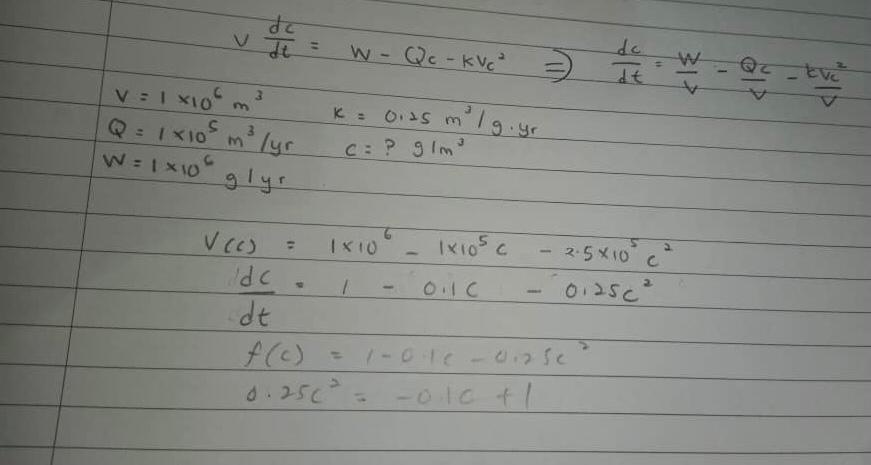 V dc/dt = W - Qc - kVc² ⇒ dc/dt = W/V - Qc/V - kVc²/V
V = 1 x10⁶ m³ k = 0.25 m³/g.yr
Q = 1 x10⁵ m³/yr c = ? g/m³
W = 1 x10⁶ g/yr
V(c) = 1x10⁶ - 1x10⁵ c - 2.5x10⁵ c²
dc/dt = 1 - 0.1c - 0.25c²
f(c) = 1 - 0.1c - 0.25c²
0.25c² = -0.1c + 1